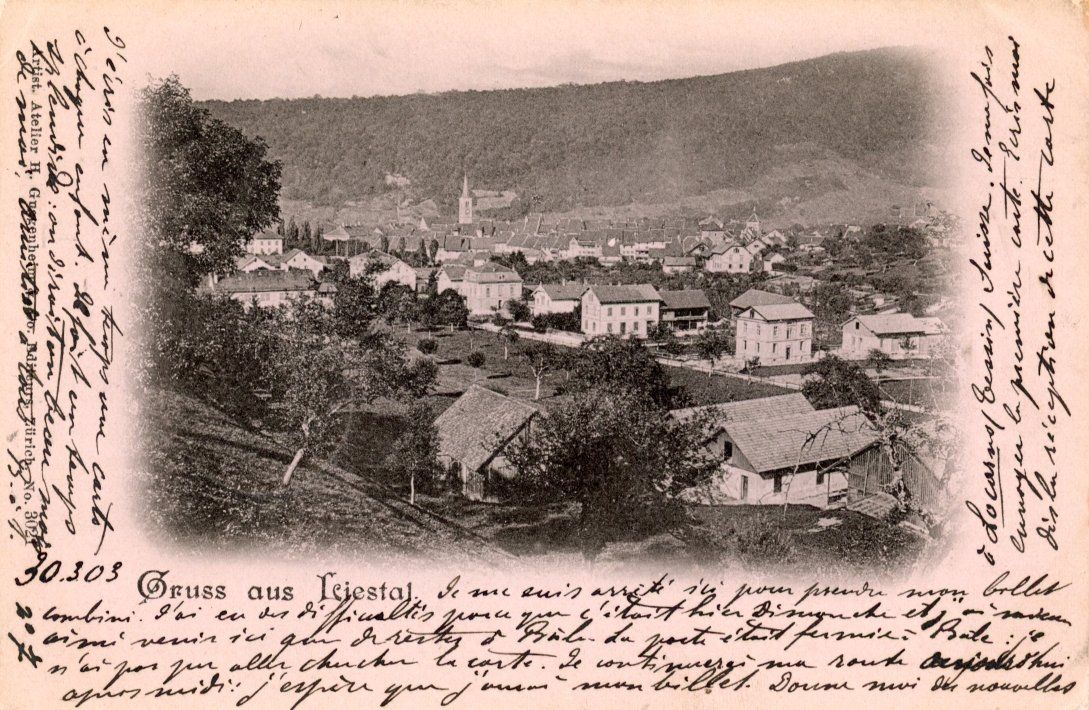 30.303
Gruss aus Liestal.
Je me suis arrêté ici pour prendre mon billet
combiné. J'ai eu des difficultés parce que c'était hier dimanche et j'ai mieux
aimé venir ici que de rester à Bâle. La poste était fermée à Bâle: je
n'ai pas pu aller chercher la carte. Je continuerai ma route aujourd'hui
après midi: j'espère que j'aurai mon billet. Donne moi des nouvelles
à Locarno/Tessin/Suisse. Tu me fais
envoyer la première carte. Ecris moi
dès la réception de cette carte
J'écris en même temps une carte
à chaque enfant. Il fait un temps
splendide: on dirait un beau mois
de mai.
Artist. Atelier H. Guggenheim & Co., Editeurs, Zürich No. 30